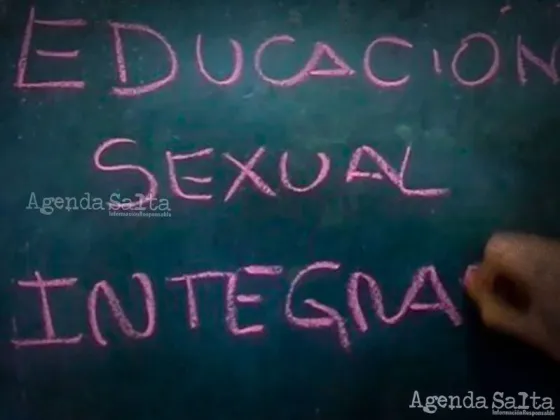 EDUCACIÓN
SEXUAL
Agenda Salta
InformaciónResponsable
INTEGRA
Agenda Salta
InformaciónResponsable